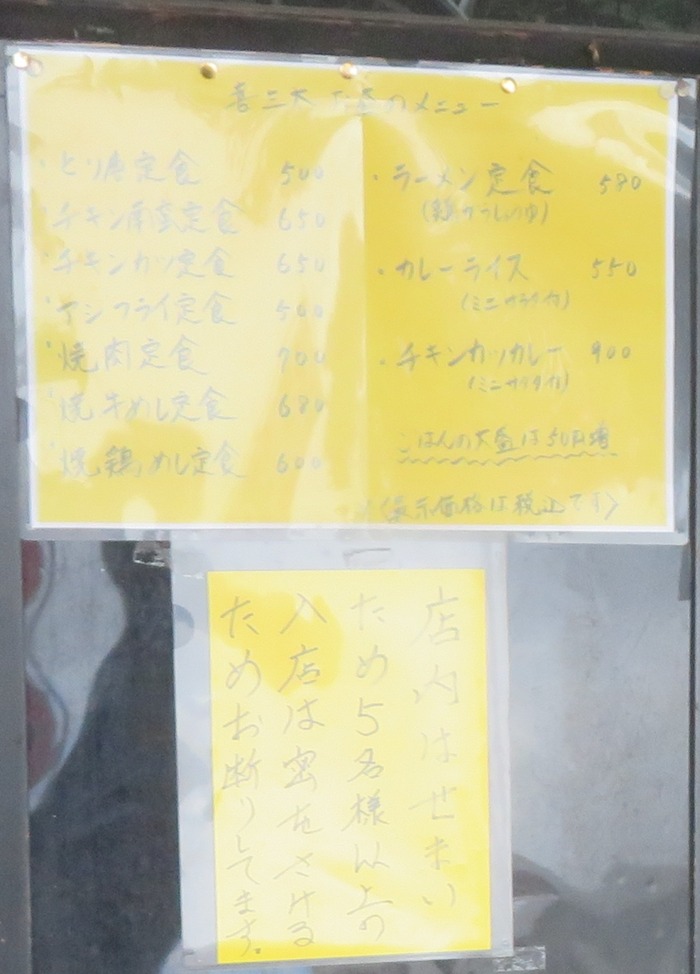 のメニュー
・とり唐定食 500
・チキン南蛮定食 650
・チキンカツ定食 650
・アジフライ定食 500
・焼肉定食 700
・焼、牛めし定食 680
・焼、鶏、めし定食 600
・ラーメン定食 580
・カレーライス 550
(ミニサラダ付)
・チキンカツカレー 900
(ミニサラダ付)
ごはんの大盛は50円増
(表示価格は税込です)
店内はせまい
ため5名様以上の
入店は密をさける
ためお断りしてます。